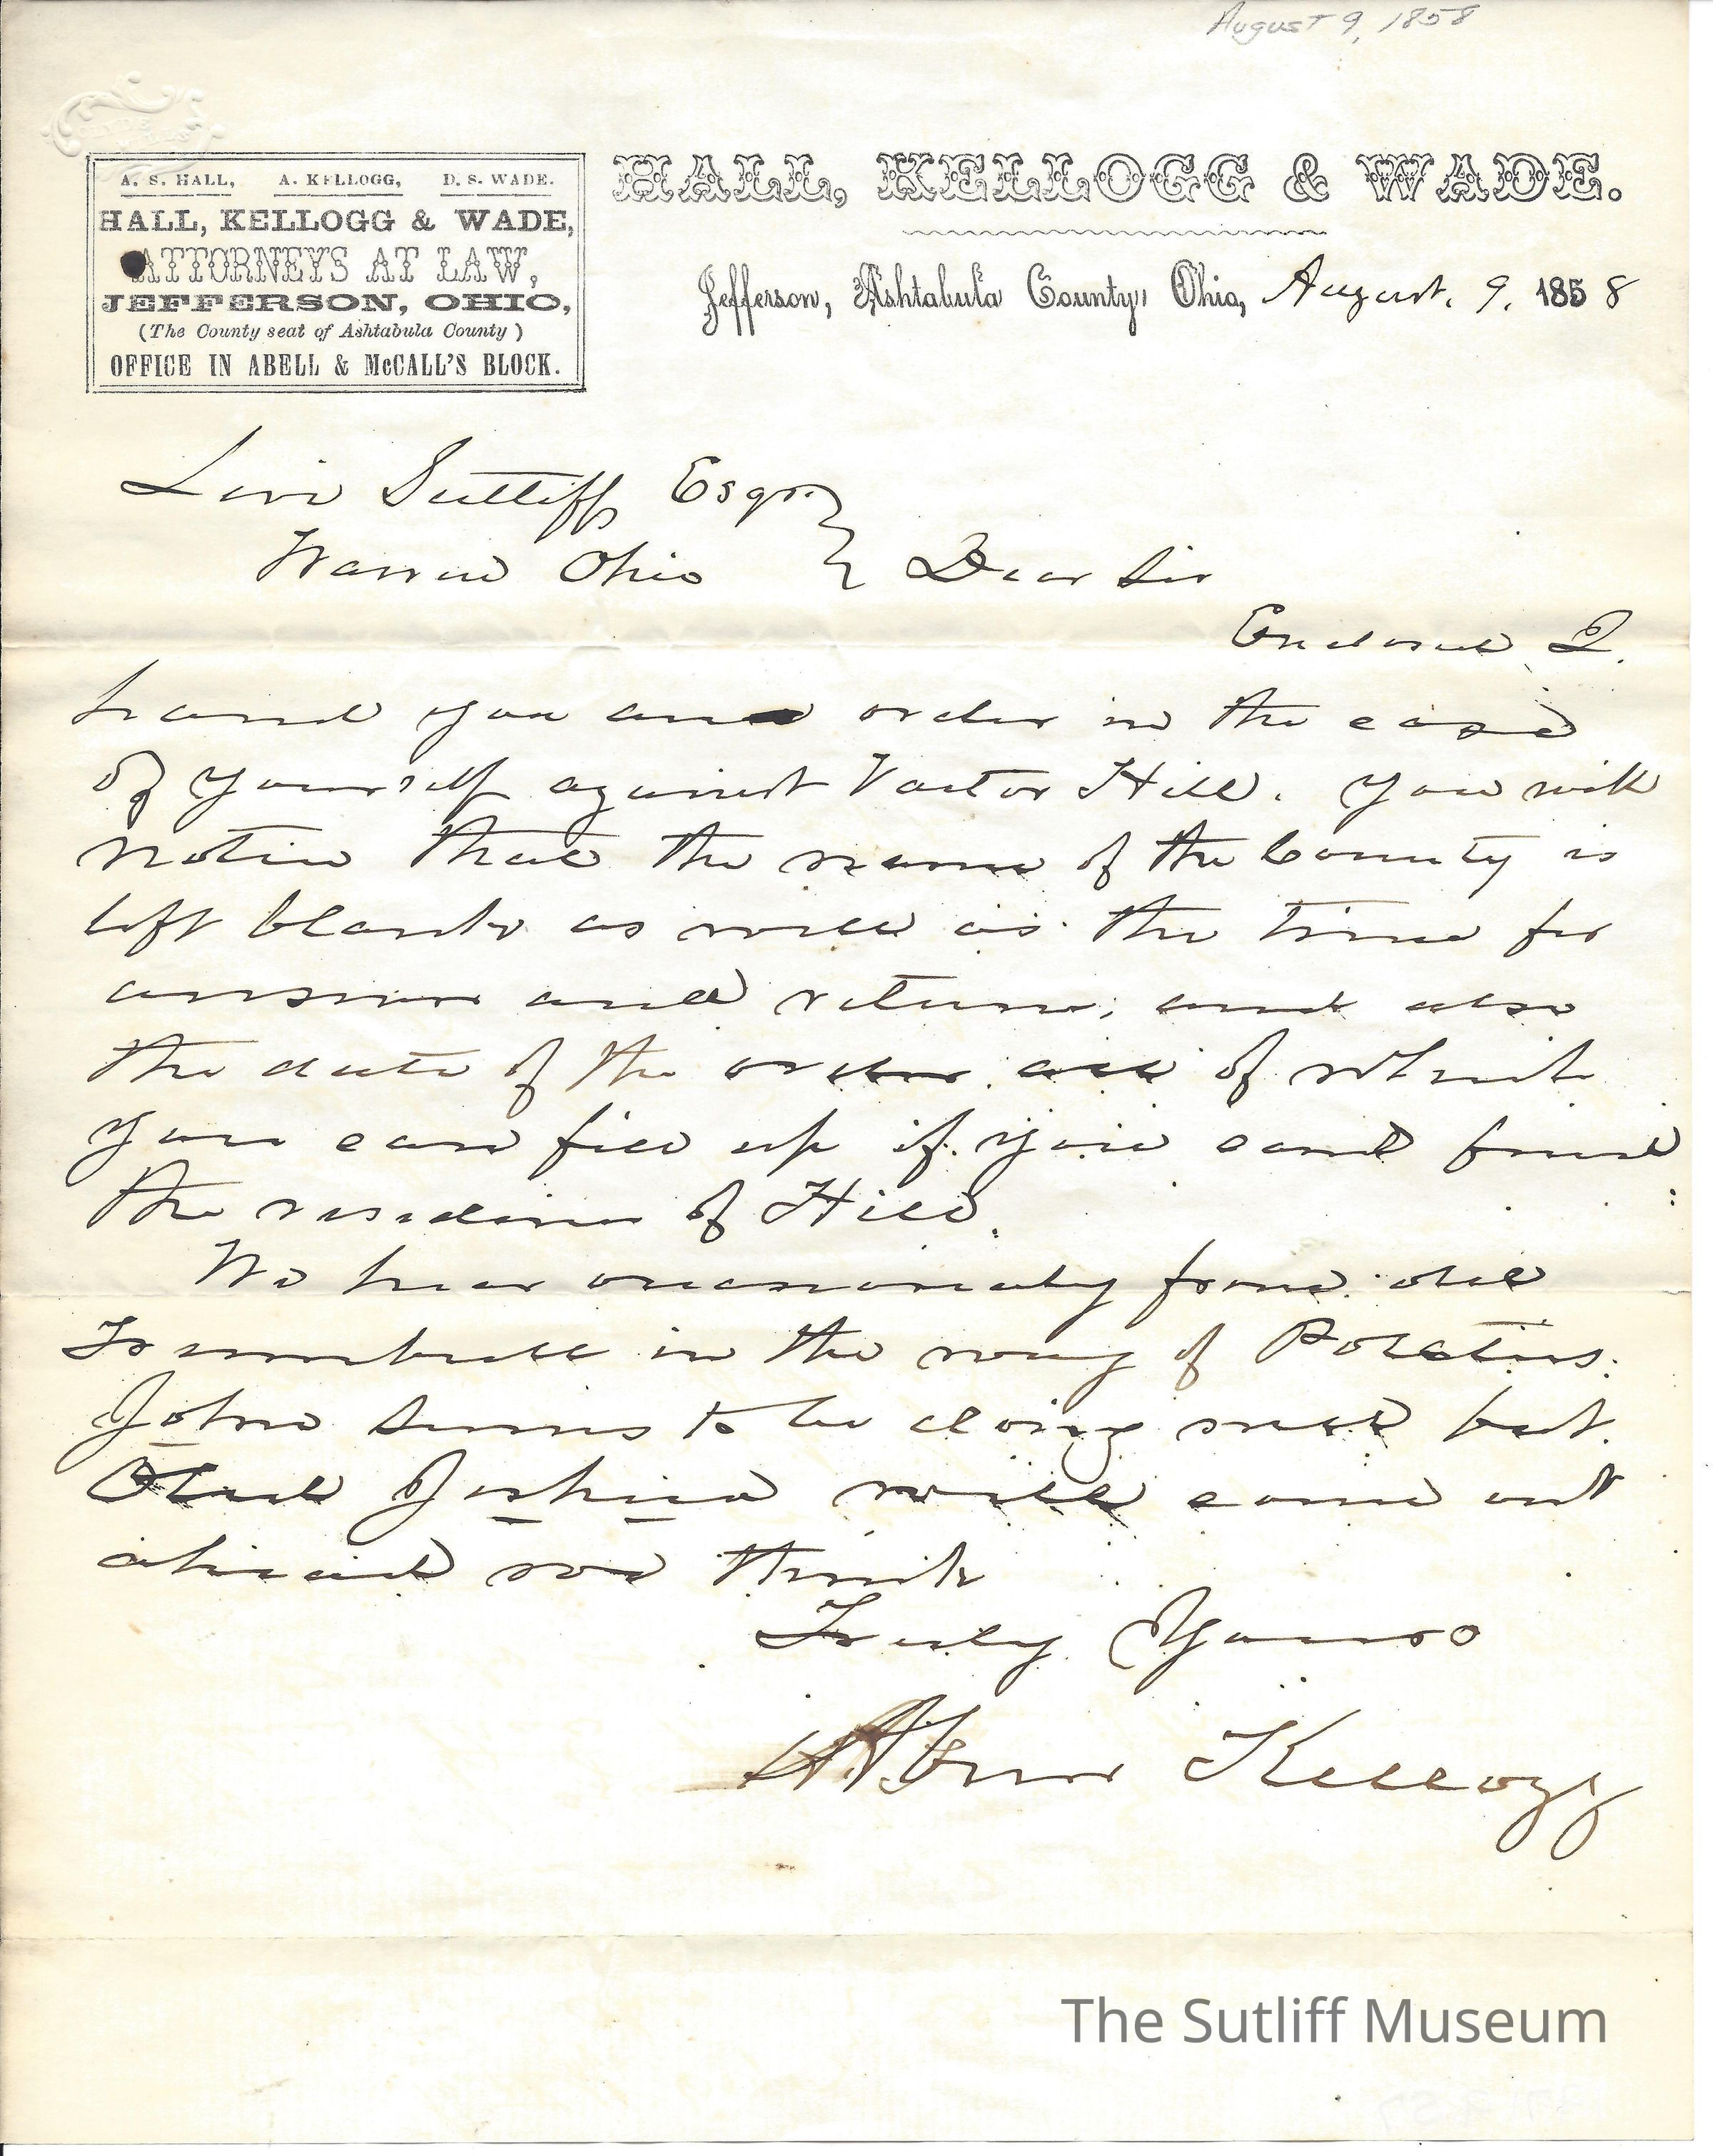 August 9, 1858
A. S. HALL, A. KELLOGG, D. S. WADE.
HALL, KELLOGG & WADE,
ATTORNEYS AT LAW,
JEFFERSON, OHIO,
(The County seat of Ashtabula County)
OFFICE IN ABELL & McCALL'S BLOCK.
HALL, KELLOGG & WADE.
Jefferson, Ashtabula County, Ohio, August. 9. 1858
Levi Sutliff Esqr.
Warren Ohio } Dear Sir
Enclosed I
hand you an order in the case
of yourself against Hill. You will
notice that the name of the County is
left blank as well as the time for
answer and return; and also
the date of the order all of which
you can fill up if you can find
the residence of Hill.
We hear occasionally from old
Trumbull in the way of Politics.
John seems to be doing well but
Old Joshua will come out
ahead we think
Truly Yours
Abner Kellogg
The Sutliff Museum